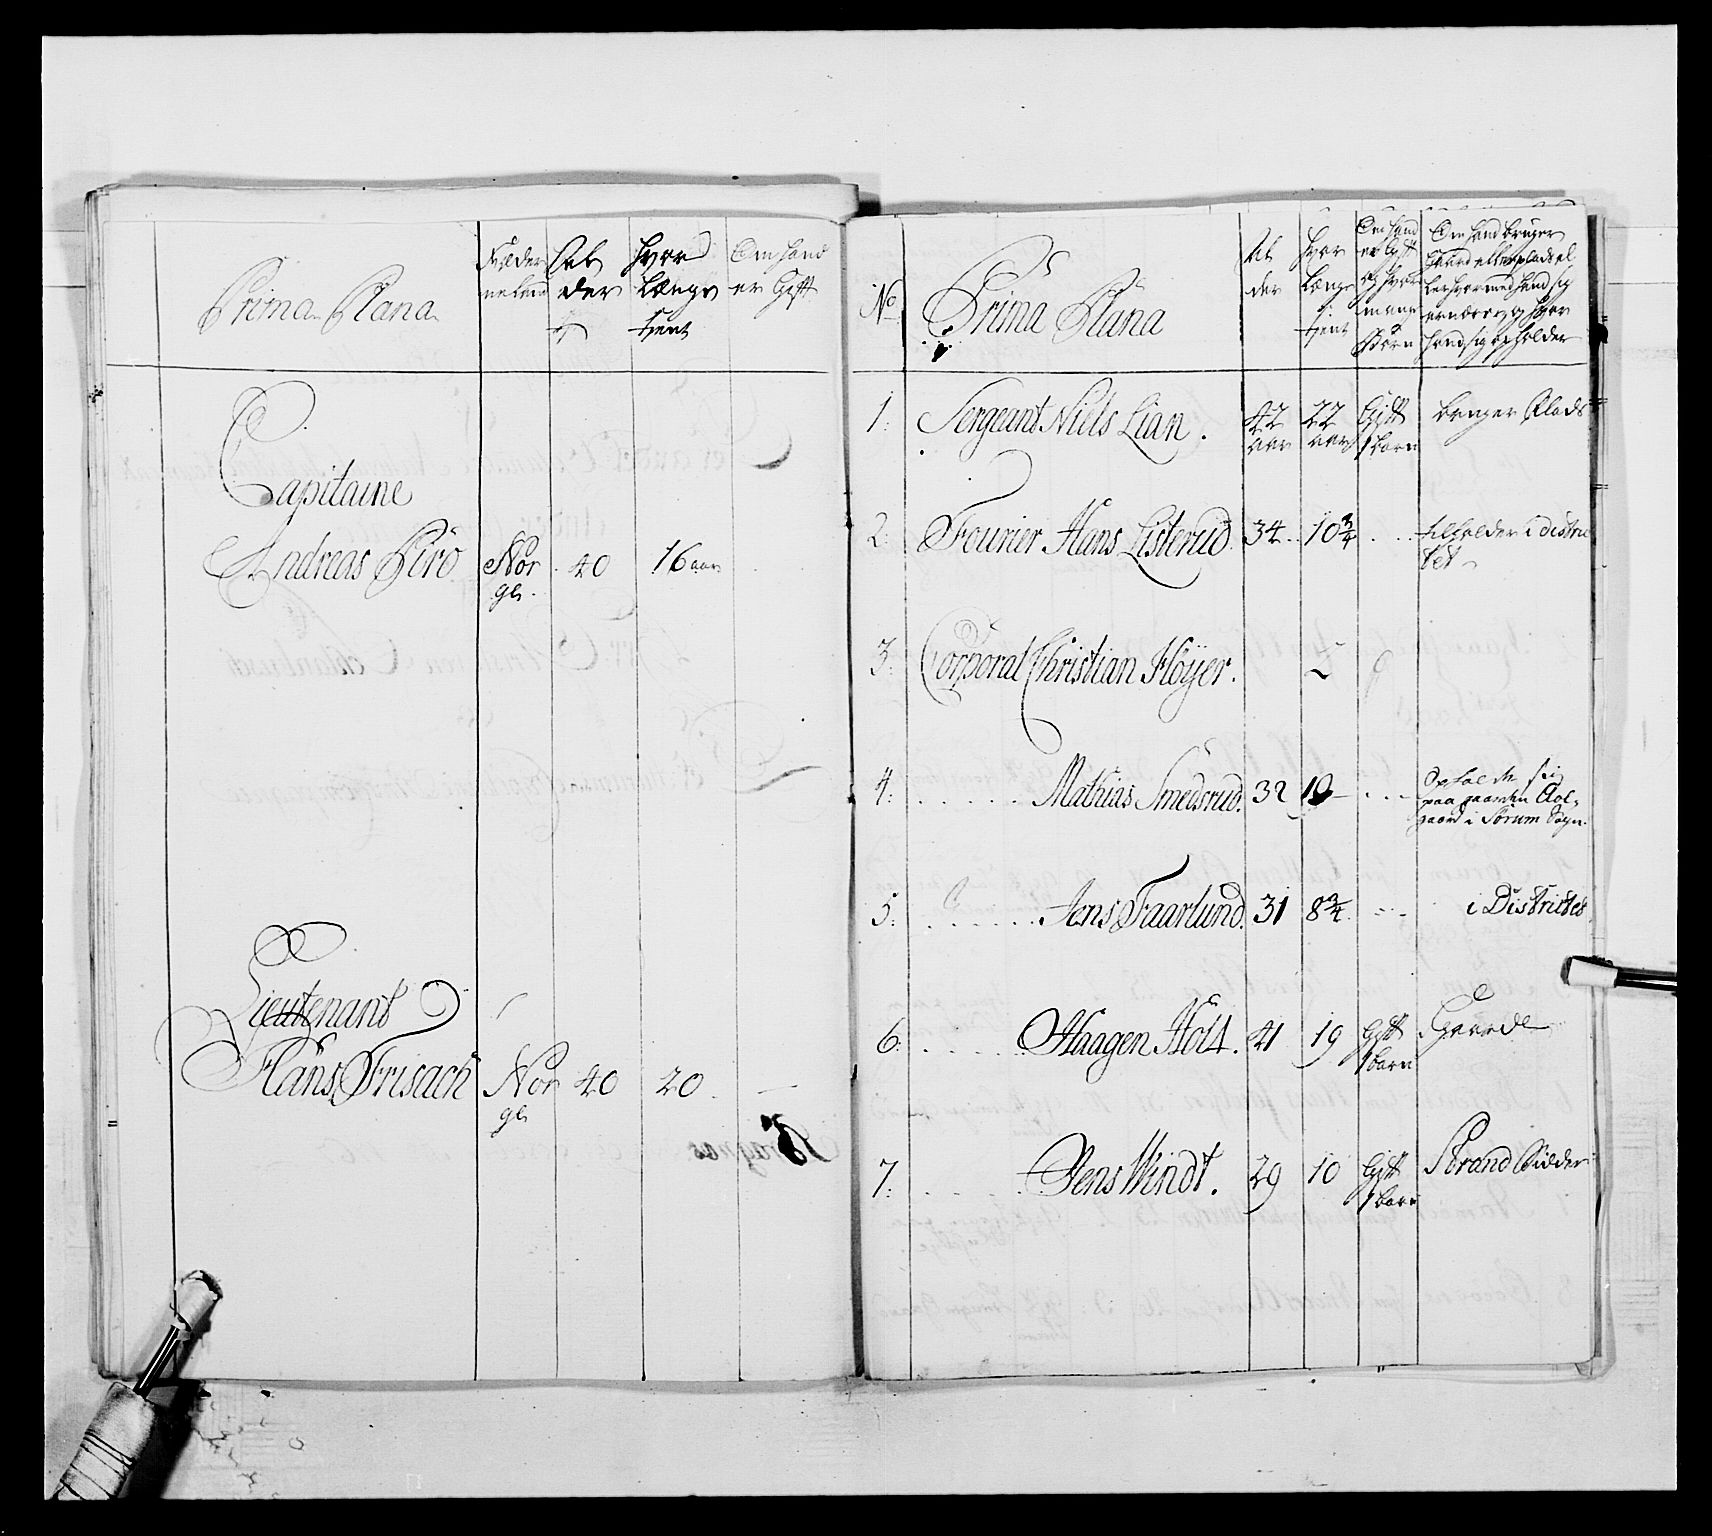 Prima Plana
Fæder
neland
Al
der
hvor
længe
tient
Om hand
er Gift
Capitaine
Andreas Birö
Nor
ge
40
16 aar
Lieutenant
Hans Frisach
Nor
ge
40
20
No
Prima Plana
Al
der
hvor
længe
tient
Om hand
er Gift
og hvor
mange
Børn
Om hand bruger
Gaard eller plads el
ler hvormed hand sig
ernærer, og hvor
hand sig opholder
1: Sergeant Niels Lian. 42 aar 22 aar Gift 1 barn bruger Plads
2: Fourier Hans Listerud. 34 10 3/4 tilholder i distric
tet
3: Corporal Christian Höyer.
4: Mathias Smedsrud. 32 10 Opholder sig
paa gaarden Aol-
gaard i Sörum Sogn.
5: Jens Faarlund. 31 8 3/4 i Districtet
6: Haagen Holt. 41 19 Gift 1 barn Gaard
7: Jens Windt. 29 10 Gift 1 barn Strand Sidder